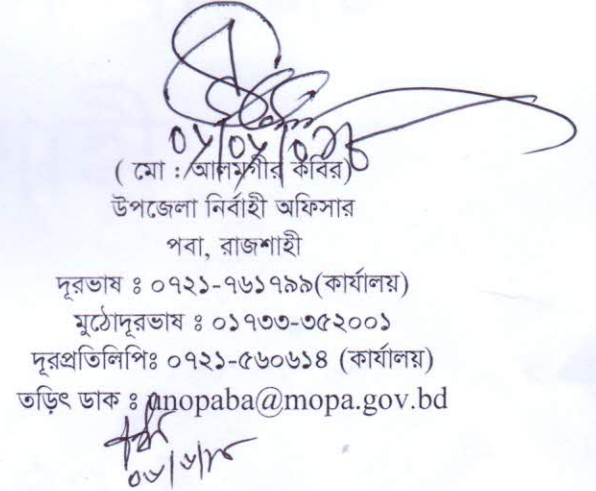 ( মো : আলমগীর কবির)
উপজেলা নির্বাহী অফিসার
পবা, রাজশাহী
দূরভাষ ঃ ০৭২১-৭৬১৭৯৯(কার্যালয়)
মুঠোদূরভাষ ঃ ০১৭৩৩-৩৫২০০১
দূরপ্রতিলিপিঃ ০৭২১-৫৬০৬১৪ (কার্যালয়)
তড়িৎ ডাক ঃ unopaba@mopa.gov.bd